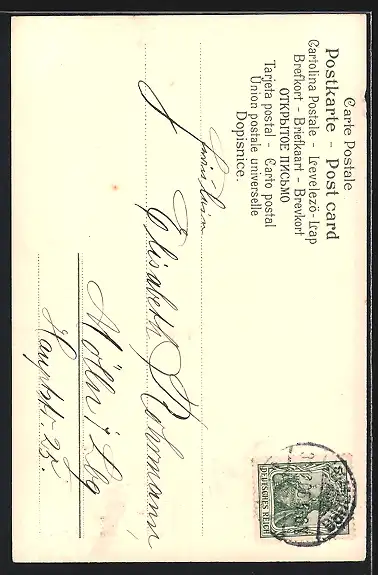 Carte Postale
Postkarte – Post card
Cartolina Postale – Levelező-Lap
Brefkort – Briefkaart – Brevkort
ОТКРЫТОЕ ПИСЬМО
Tarjeta postal – Carto postal
Union postale universelle
Dopisnice.
Fräulein
Elisabeth Rohrmann
Mölln i/Lbg
Hauptstr. 25.
DEUTSCHES REICH